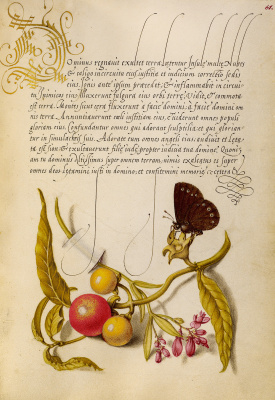 61.
Dominus regnauit exultet terra, letentur Insule multe. Nubes
et caligo in circuitu eius iustitia et iudicium correctio sedis
eius. Ignis ante ipsum precedet, et inflammabit in circui-
tu inimicos eius. Illuxerunt fulgura eius orbi terre. Vidit, et commota
est terra. Montes sicut cera fluxerunt a facie domini, a facie domini om
nis terra. Annuntiauerunt celi iustitiam eius, et uiderunt omnes populi
gloriam eius. Confundantur omnes qui adorant sculptilia et qui glorian-
tur in simulachris suis. Adorate eum omnes angeli eius audiuit et leta-
ta est sion. et exultauerunt filie iude propter iudicia tua domine. Quoni
am tu dominus Altissimus super omnem terram, nimis exaltatus es super
omnes deos